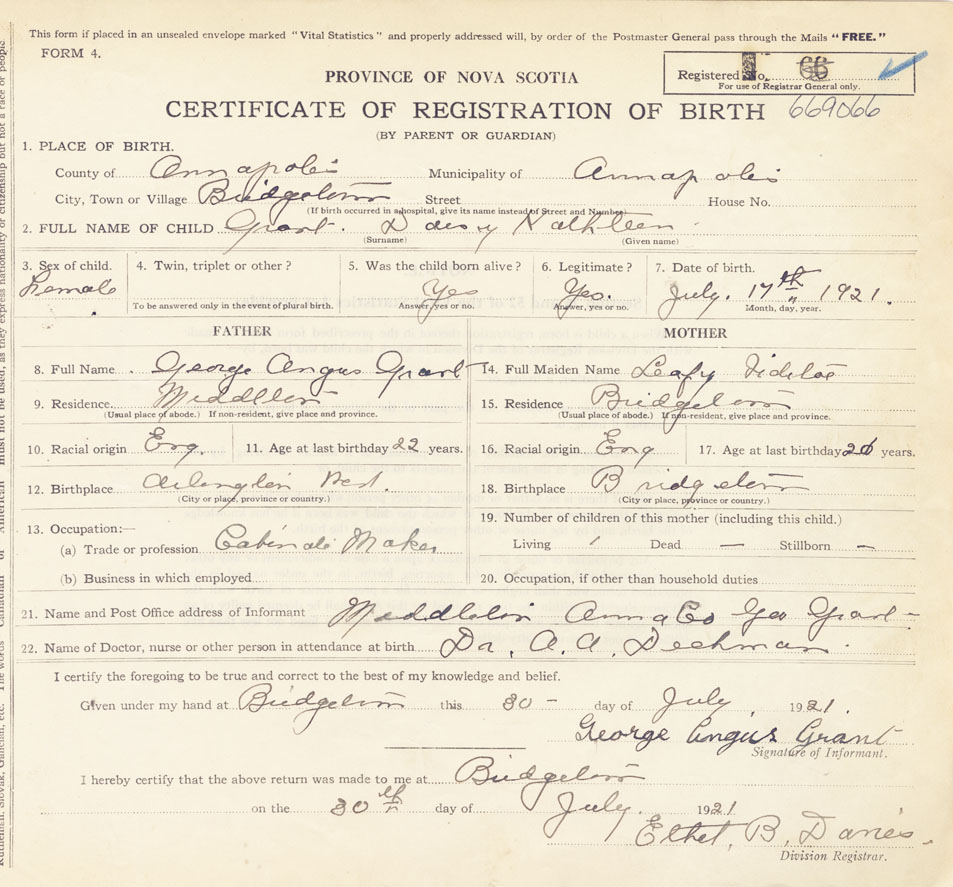 This form if placed in an unsealed envelope marked "Vital Statistics" and properly addressed will, by order of the Postmaster General pass through the Mails "FREE."
FORM 4.
Registered No. 66
For use of Registrar General only.
PROVINCE OF NOVA SCOTIA
CERTIFICATE OF REGISTRATION OF BIRTH 669066
(BY PARENT OR GUARDIAN)
1. PLACE OF BIRTH.
County of Annapolis Municipality of Annapolis
City, Town or Village Bridgetown Street House No.
(If birth occurred in a hospital, give its name instead of Street and Number)
2. FULL NAME OF CHILD Grant. Daisy Kathleen
(Surname) (Given name)
3. Sex of child. 4. Twin, triplet or other? 5. Was the child born alive? 6. Legitimate? 7. Date of birth.
Female Yes Yes. July. 17th 1921.
To be answered only in the event of plural birth. Answer, yes or no. Answer, yes or no. Month, day, year.
FATHER
8. Full Name George Angus Grant
9. Residence Middleton
(Usual place of abode.) If non-resident, give place and province.
10. Racial origin Eng. 11. Age at last birthday 22 years.
12. Birthplace Arlington West.
(City or place, province or country.)
13. Occupation:—
(a) Trade or profession Cabinate Maker
(b) Business in which employed
MOTHER
14. Full Maiden Name Leafy
15. Residence Bridgetown
(Usual place of abode.) If non-resident, give place and province.
16. Racial origin Eng 17. Age at last birthday years.
18. Birthplace Bridgetown
(City or place, province or country.)
19. Number of children of this mother (including this child.)
Living 1 Dead — Stillborn —
20. Occupation, if other than household duties
21. Name and Post Office address of Informant Middleton Anna Co Geo Grant
22. Name of Doctor, nurse or other person in attendance at birth Dr. A. A. Dechman.
I certify the foregoing to be true and correct to the best of my knowledge and belief.
Given under my hand at Bridgetown this 30 - day of July 1921.
George Angus Grant
Signature of Informant.
I hereby certify that the above return was made to me at Bridgetown
on the 30th day of July. 1921
Ethel. B. Davies.
Division Registrar.